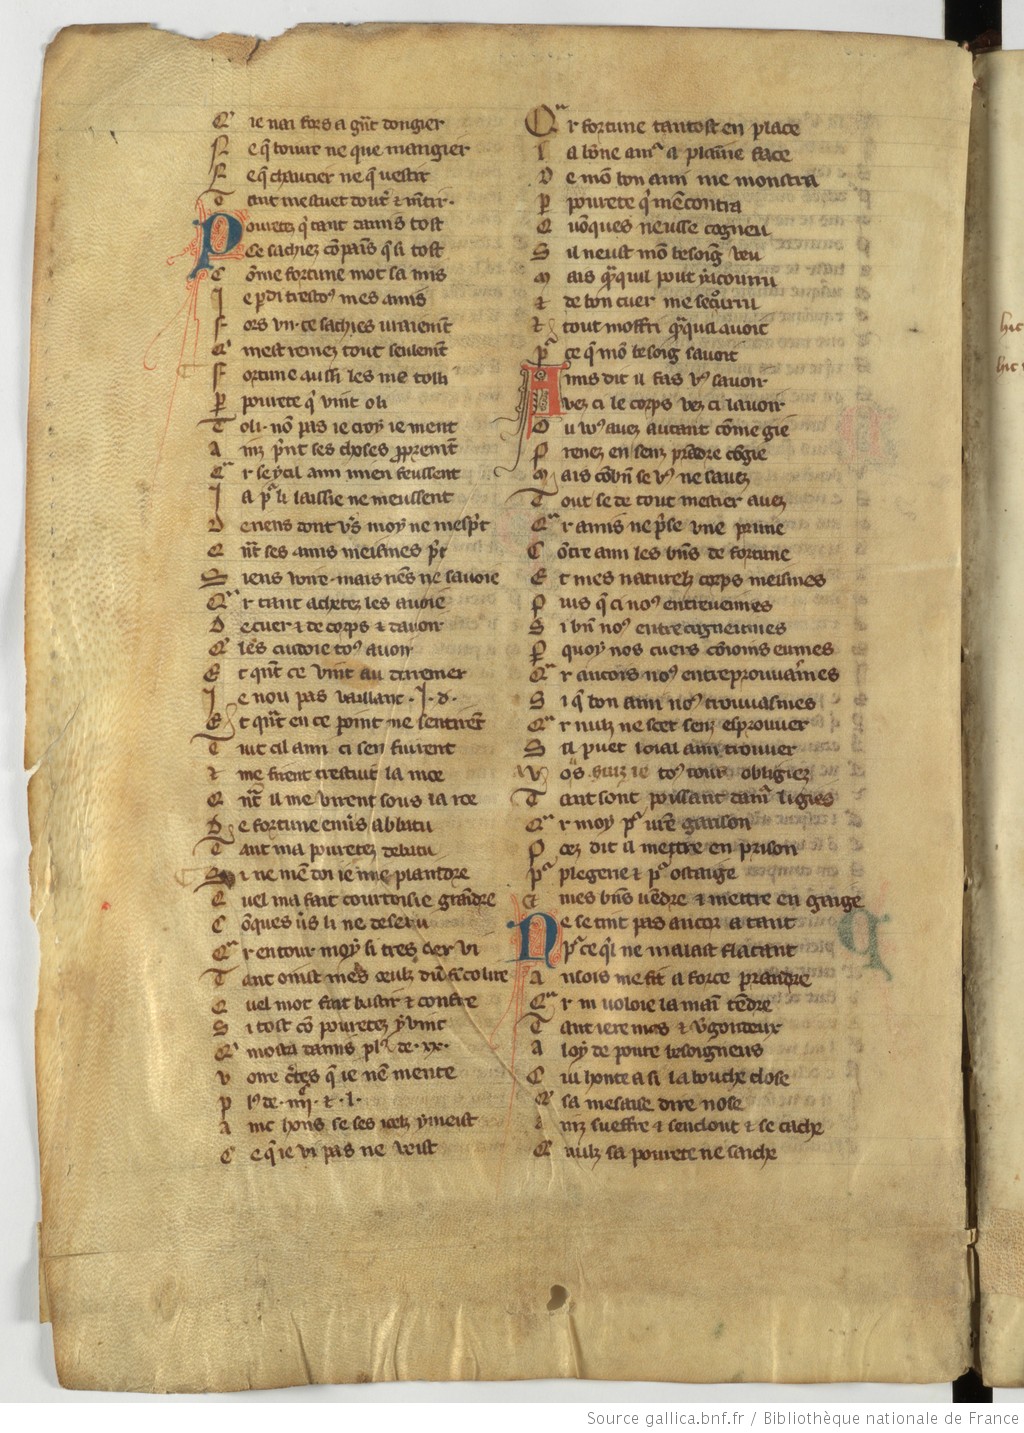 Q' ie nai fors a gñt dongier
N e q̃ boivre ne que mangier
N e q̃ chaucier ne q̃ vestir
T ant mestuet dout' ⁊ m̃tir.
Povretez q' tant damis tost
Ce sachiez cõ pais q' si tost
C õme fortune mot sa mis
I e p̱di trestoꝰ mes amis
F ors vn. ce sachies vraiem̃t
Q' mest remez tout seulem̃t
F ortune aussi les me tolli
P̱ povrete q' vint o li
T oli. nõ pas ie croy ie ment
A inz p'nt ses choses ꝓprem̃t
Q̃r se cil ami mien feussent
I a pᵒ li laissie ne meussent
D e riens dont vs̃ moy ne mesp't
Q ñt ses amis meismes p't
S iens voire. mais riẽs ne savoie
Q̃r tant achetez les avoie
D e cuer ⁊ de corps ⁊ davoir
Q' les cuidoie toꝰ avoir
E t q̃nt ce vint au derrenier
I e nou pas vaillant .I. d.
E t q̃nt en ce point me sentirẽt
T uit cil ami ci sen fuirent
⁊ me firent trestuit la moe
Q ñt il me virent sous la roe
D e fortune enũs abbatu
T ant ma povretez debatu
S i ne mẽ doi ie mie plaindre
Q uel ma fait courtoisie grãdre
C õques ũs li ne deservi
Q̃r entour moy si tres cler vi
T ant oinst mes oeulz dũ fi colire
Q uel mot fait bastir ⁊ confire
S i tost cõ povretez y vint
Q' mosta damis plꝰ de .xx.
V oire c̃tes q̃ ie nẽ mente
P lꝰ de .iiijᶜ. ⁊ .l.
A inc hons se ses ielz y meist
C e q̃ ie vi pas ne veist
Q̃r fortune tantost en place
L a bõne amᵒ a plaine face
D e mõ bon ami me monstra
P̱ povrete q' mẽcontra
Q uõques neusse cogneu
S il neust mõ besoig̃ veu
M ais q̃nquil pout y acourut
⁊ de bon cuer me secourru
⁊ tout moffri q̃nqua avoit
Pᵒ ce q̃ mõ besoig savoit
Amis dit il fas vꝰ savoir
Vez ci le corps vez ci lavoir
O u vꝰ avez autant cõme gie
P renez en senz prãdre cõgie
M ais cõbñ se vꝰ ne savez
T out se de tout mestier avez
Q̃r amis ne p'se vne prune
C õtre ami les bñs de fortune
E t mes naturelz corps meismes
P uis q̃ ci noꝰ entreveimes
S i bñ noꝰ entrecogneumes
P̱ quoy nos cuers cõioins eumes
Q̃r aincois noꝰ entreprouvames
S i q̃ bon ami noꝰ trouvasmes
Q̃r nulz ne scet senz esprouver
S il puet loial ami trouver
V os suiz ie toꝰ iours obligiez
T ant sont poissant damᵒ li gies
Q̃r moy pᵒ vrẽ garison
P oez dit il mettre en prison
Pᵒ plegerie ⁊ pᵒ ostaige
⁊ mes bñs vẽdre ⁊ mettre en gaige
Ne se tint pas ancor a tant
Pᵒ ce q'l ne malast flatant
A ncois me fit a force prandre
Q̃r ni voloie la mai tẽdre
T ant iere mas ⁊ v̓gondeux
A loy de povre besoigneus
C ui honte a si la bouche close
Q' sa mesaise dire nose
A inz sueffre ⁊ senclout ⁊ se cache
Q' nulz sa povrete ne sache
Source gallica.bnf.fr / Bibliothèque nationale de France